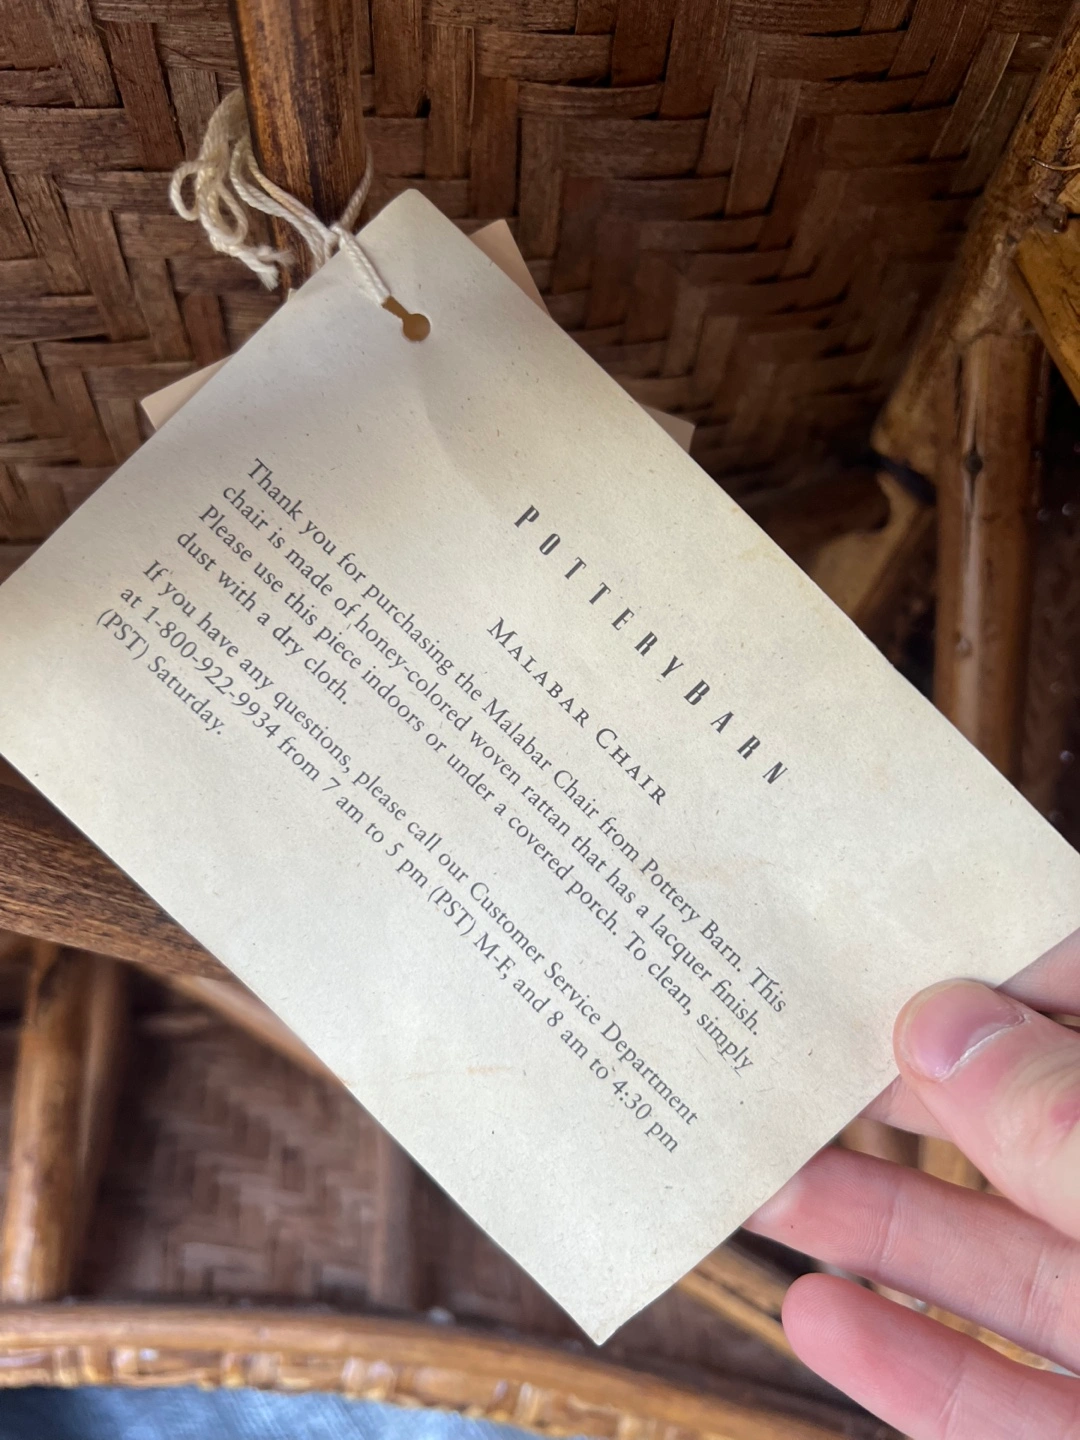 POTTERY BARN
MALABAR CHAIR
Thank you for purchasing the Malabar Chair from Pottery Barn. This
chair is made of honey-colored woven rattan that has a lacquer finish.
Please use this piece indoors or under a covered porch. To clean, simply
dust with a dry cloth.
If you have any questions, please call our Customer Service Department
at 1-800-922-9934 from 7 am to 5 pm (PST) M-F, and 8 am to 4:30 pm
(PST) Saturday.